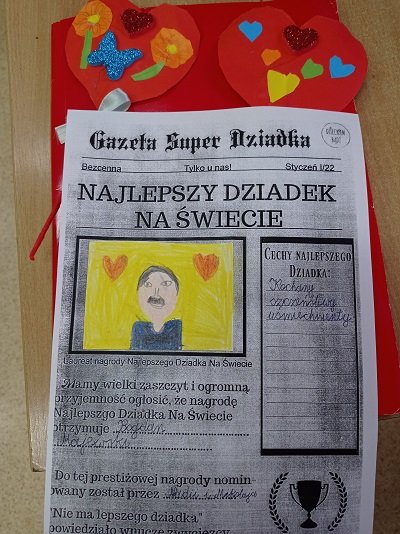 Gazeta Super Dziadka
Bezcenna Tylko u nas! Styczeń 1/22
NAJLEPSZY DZIADEK
NA ŚWIECIE
CECHY NAJLEPSZEGO
DZIADKA:
Kochany
szczęśliwy
uśmiechnięty
Laureat nagrody Najlepszego Dziadka Na Świecie
Mamy wielki zaszczyt i ogromną
przyjemność ogłosić, że nagrodę
Najlepszgo Dziadka Na Świecie
otrzymuje Bogdan
Do tej prestiżowej nagrody nomin-
owany został przez
"Nie ma lepszego dziadka"
powiedziało wnuczę zwycięzcy